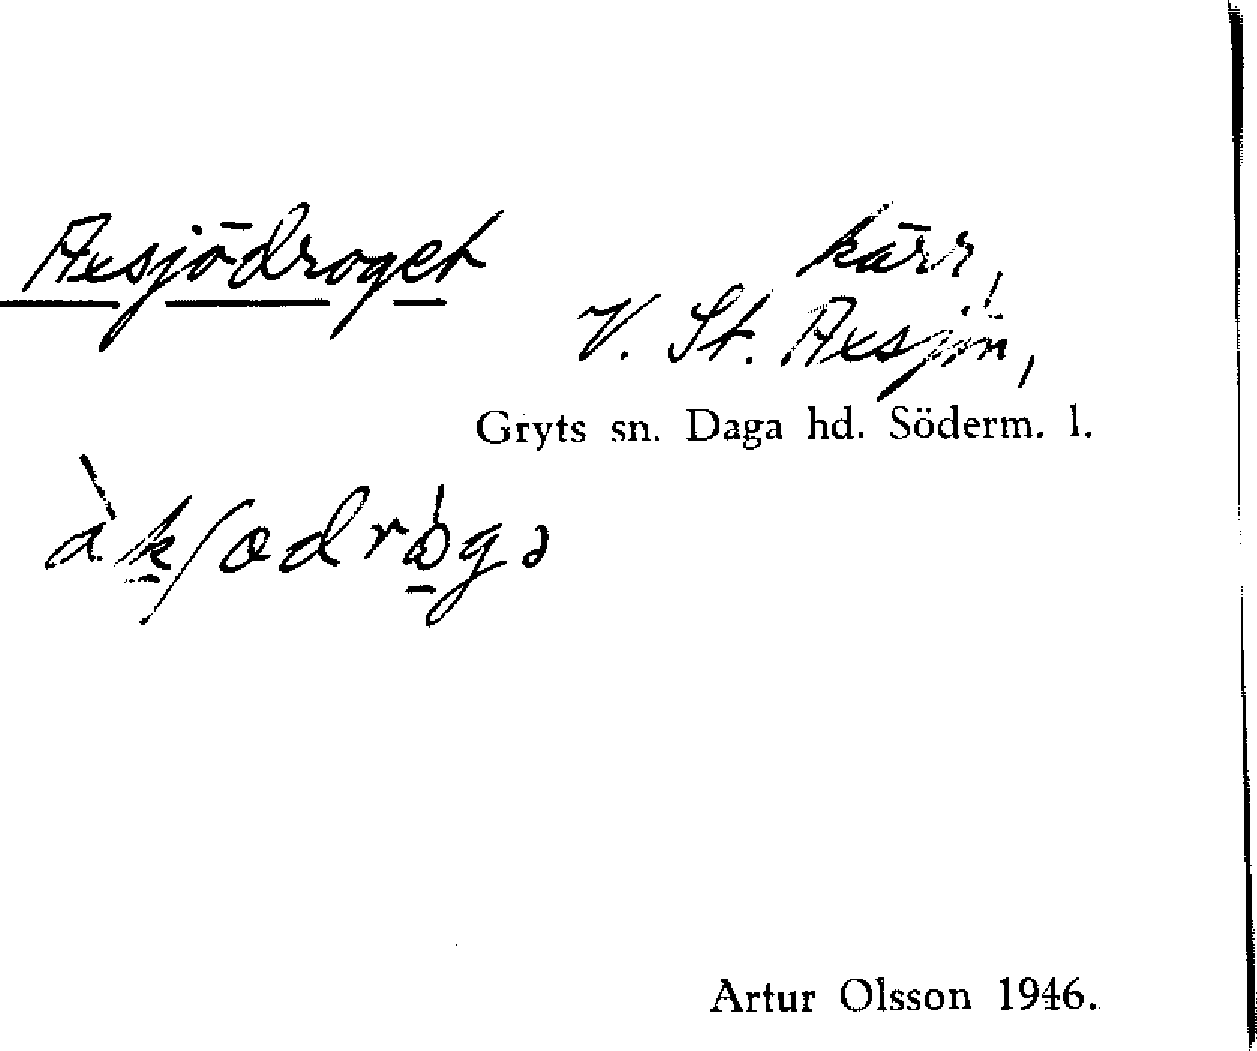 Axsjödroget
kärr,
V. St. Axsjön,
Gryts sn. Daga hd. Söderm. l.
Artur Olsson 1946.